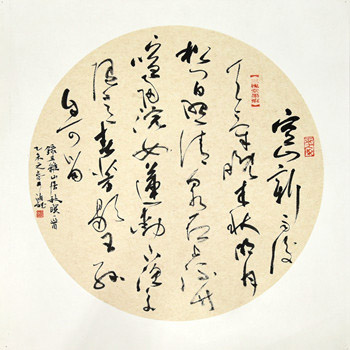 空山新雨後
天氣晚来秋明月
松間照清泉石上流竹
喧歸浣女蓮動下漁舟
隨意春芳歇王孫
自可留
錄王維山居秋暝一首
乙未之春月